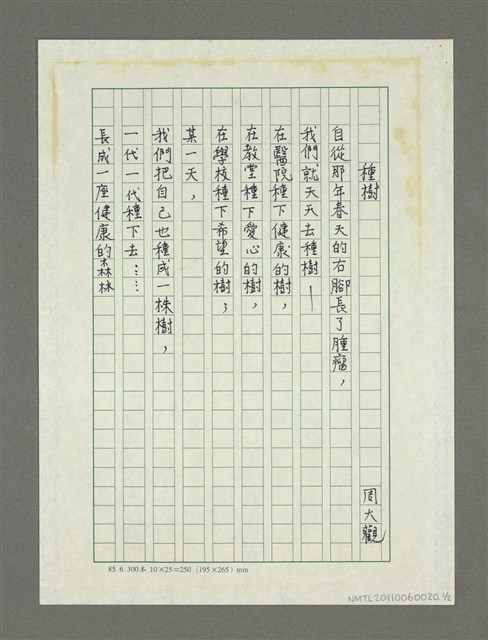 種樹
周大觀
自從那年春天的右腳長了腫瘤，
我們就天天去種樹—
在醫院種下健康的樹，
在教堂種下愛心的樹，
在學校種下希望的樹；
某一天，
我們把自己也種成一株樹，
一代一代種下去……
長成一座健康的森林
85. 6. 300本 10×25=250 (195×265) mm
NMTL20110060020.1/2